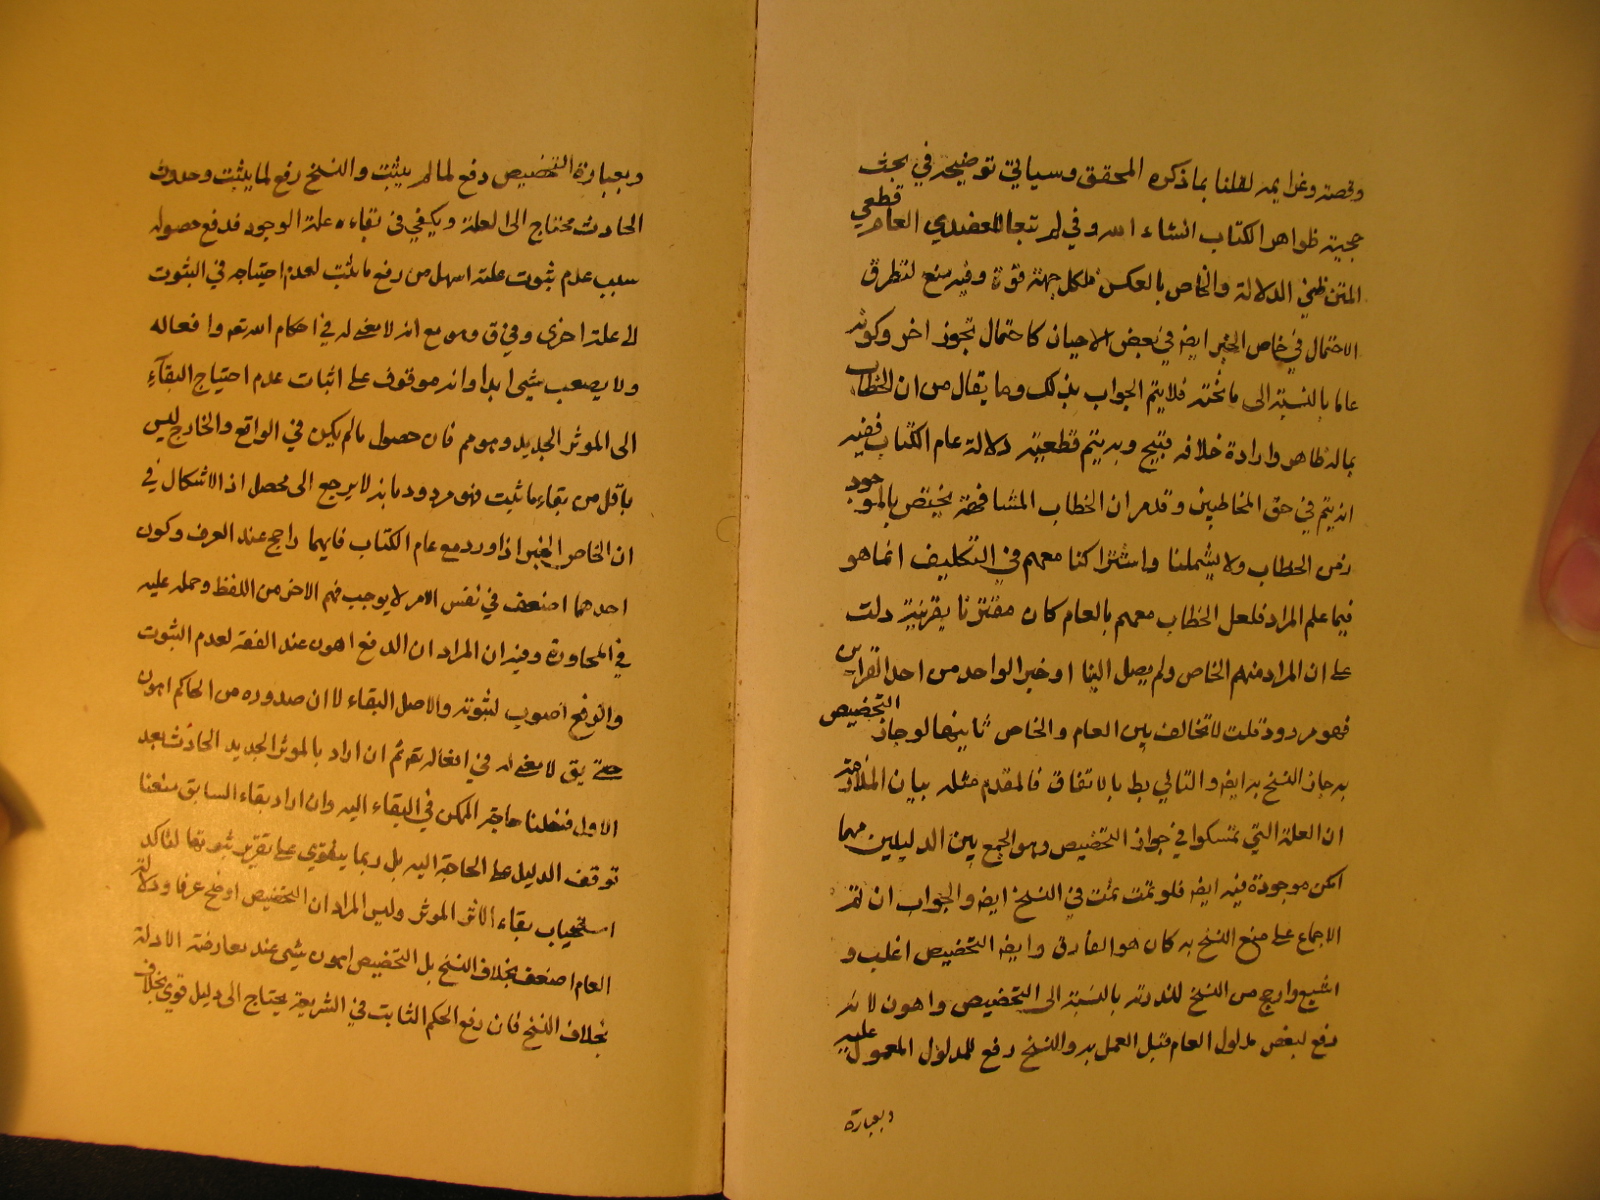 ورخصه وعزايمه لقلنا بما ذكره المحقق وسياتي توضيحه في بحث
حجية ظواهر الكتاب انشاء الله وفي لم تبعا للعضدي العام قطعي
المتن ظني الدلالة والخاص بالعكس فلكل جهة قوة وفيه منع لتطرق
الاحتمال في خاص الخبر ايضا في بعض الاحيان كاحتمال تجوز اخر وكونه
عاما بالنسبة الى ما تحته فلا يتم الجواب بذلك وما يقال من ان الخطاب
بماله ظاهر وارادة خلافه قبيح وبه يتم قطعية دلالة عام الكتاب ففيه
انه يتم في حق المخاطبين وقد مر ان الخطاب المشافهة يختص بالموجود
زمن الخطاب ولا يشملنا واشتراكنا معهم في التكليف انما هو
فيما علم المراد فلعل الخطاب معهم بالعام كان مقترنا بقرينة دلت
على ان المراد منهم الخاص ولم يصل الينا او خبر الواحد من احد القراين
فهو مردود قلت لا تخالف بين العام والخاص ثانيها لو جاز التخصيص
به جاز النسخ به ايضا والتالي بط بالاتفاق فالمقدم مثله بيان الملازمة
ان العلة التي تمسكوا في جواز التخصيص وهو الجمع بين الدليلين مهما
امكن موجودة فيه ايضا فلو تمت تمت في النسخ ايضا والجواب ان تم
الاجماع على منع النسخ به كان هو الفارق وايضا التخصيص اغلب و
اشيع وارجح من النسخ لندرته بالنسبة الى التخصيص واهون لانه
دفع لبعض مدلول العام قبل العمل به والنسخ رفع للمدلول المعمول عليه
وبعبارة
وبعبارة التخصيص دفع لما لم يثبت والنسخ رفع لما يثبت وحدوث
الحادث محتاج الى العلة ويكفي في بقاءه علة الوجود فدفع حصوله
بسبب عدم ثبوت علته اسهل من رفع ما ثبت لعدم احتياجه في الثبوت
الى علة اخرى وفي ق وهو مع انه لا معنى له في احكام الله تعم وافعاله
ولا يصعب شيئ ابدا وانه موقوف على اثبات عدم احتياج البقآء
الى الموثر الجديد وهو مم فان حصول ما لم يكن في الواقع والخارج ليس
باقل من بقاء ما ثبت فهو مردود بانه لا يرجع الى محصل اذ الاشكال في
ان الخاص الخبر اذا ورد مع عام الكتاب فايهما راجح عند العرف وكون
احدهما اضعف في نفس الامر لا يوجب فهم الاخر من اللفظ وحمله عليه
في المحاورة وفيه ان المراد ان الدفع اهون عند الفقه لعدم الثبوت
والرفع اصوب لثبوته والاصل البقاء لا ان صدوره من الحاكم اهون
حتى يق لا معنى له في افعاله تعم ثم ان اراد بالموثر الجديد الحادث بعد
الاول فمنعنا حاجة الممكن في البقاء اليه وان اراد بقاء السابق منعنا
توقف الدليل على الحاجة اليه بل ربما يقوي على تقرير ثبوتها لتاكد
استصحاب بقاء الاثر الموثر وليس المراد ان التخصيص اوضح عرفا ودلالة
العام اضعف بخلاف النسخ بل التخصيص اهون شيئ عند معارضة الادلة
بخلاف النسخ فان رفع الحكم الثابت في الشريعة يحتاج الى دليل قوي بخلاف